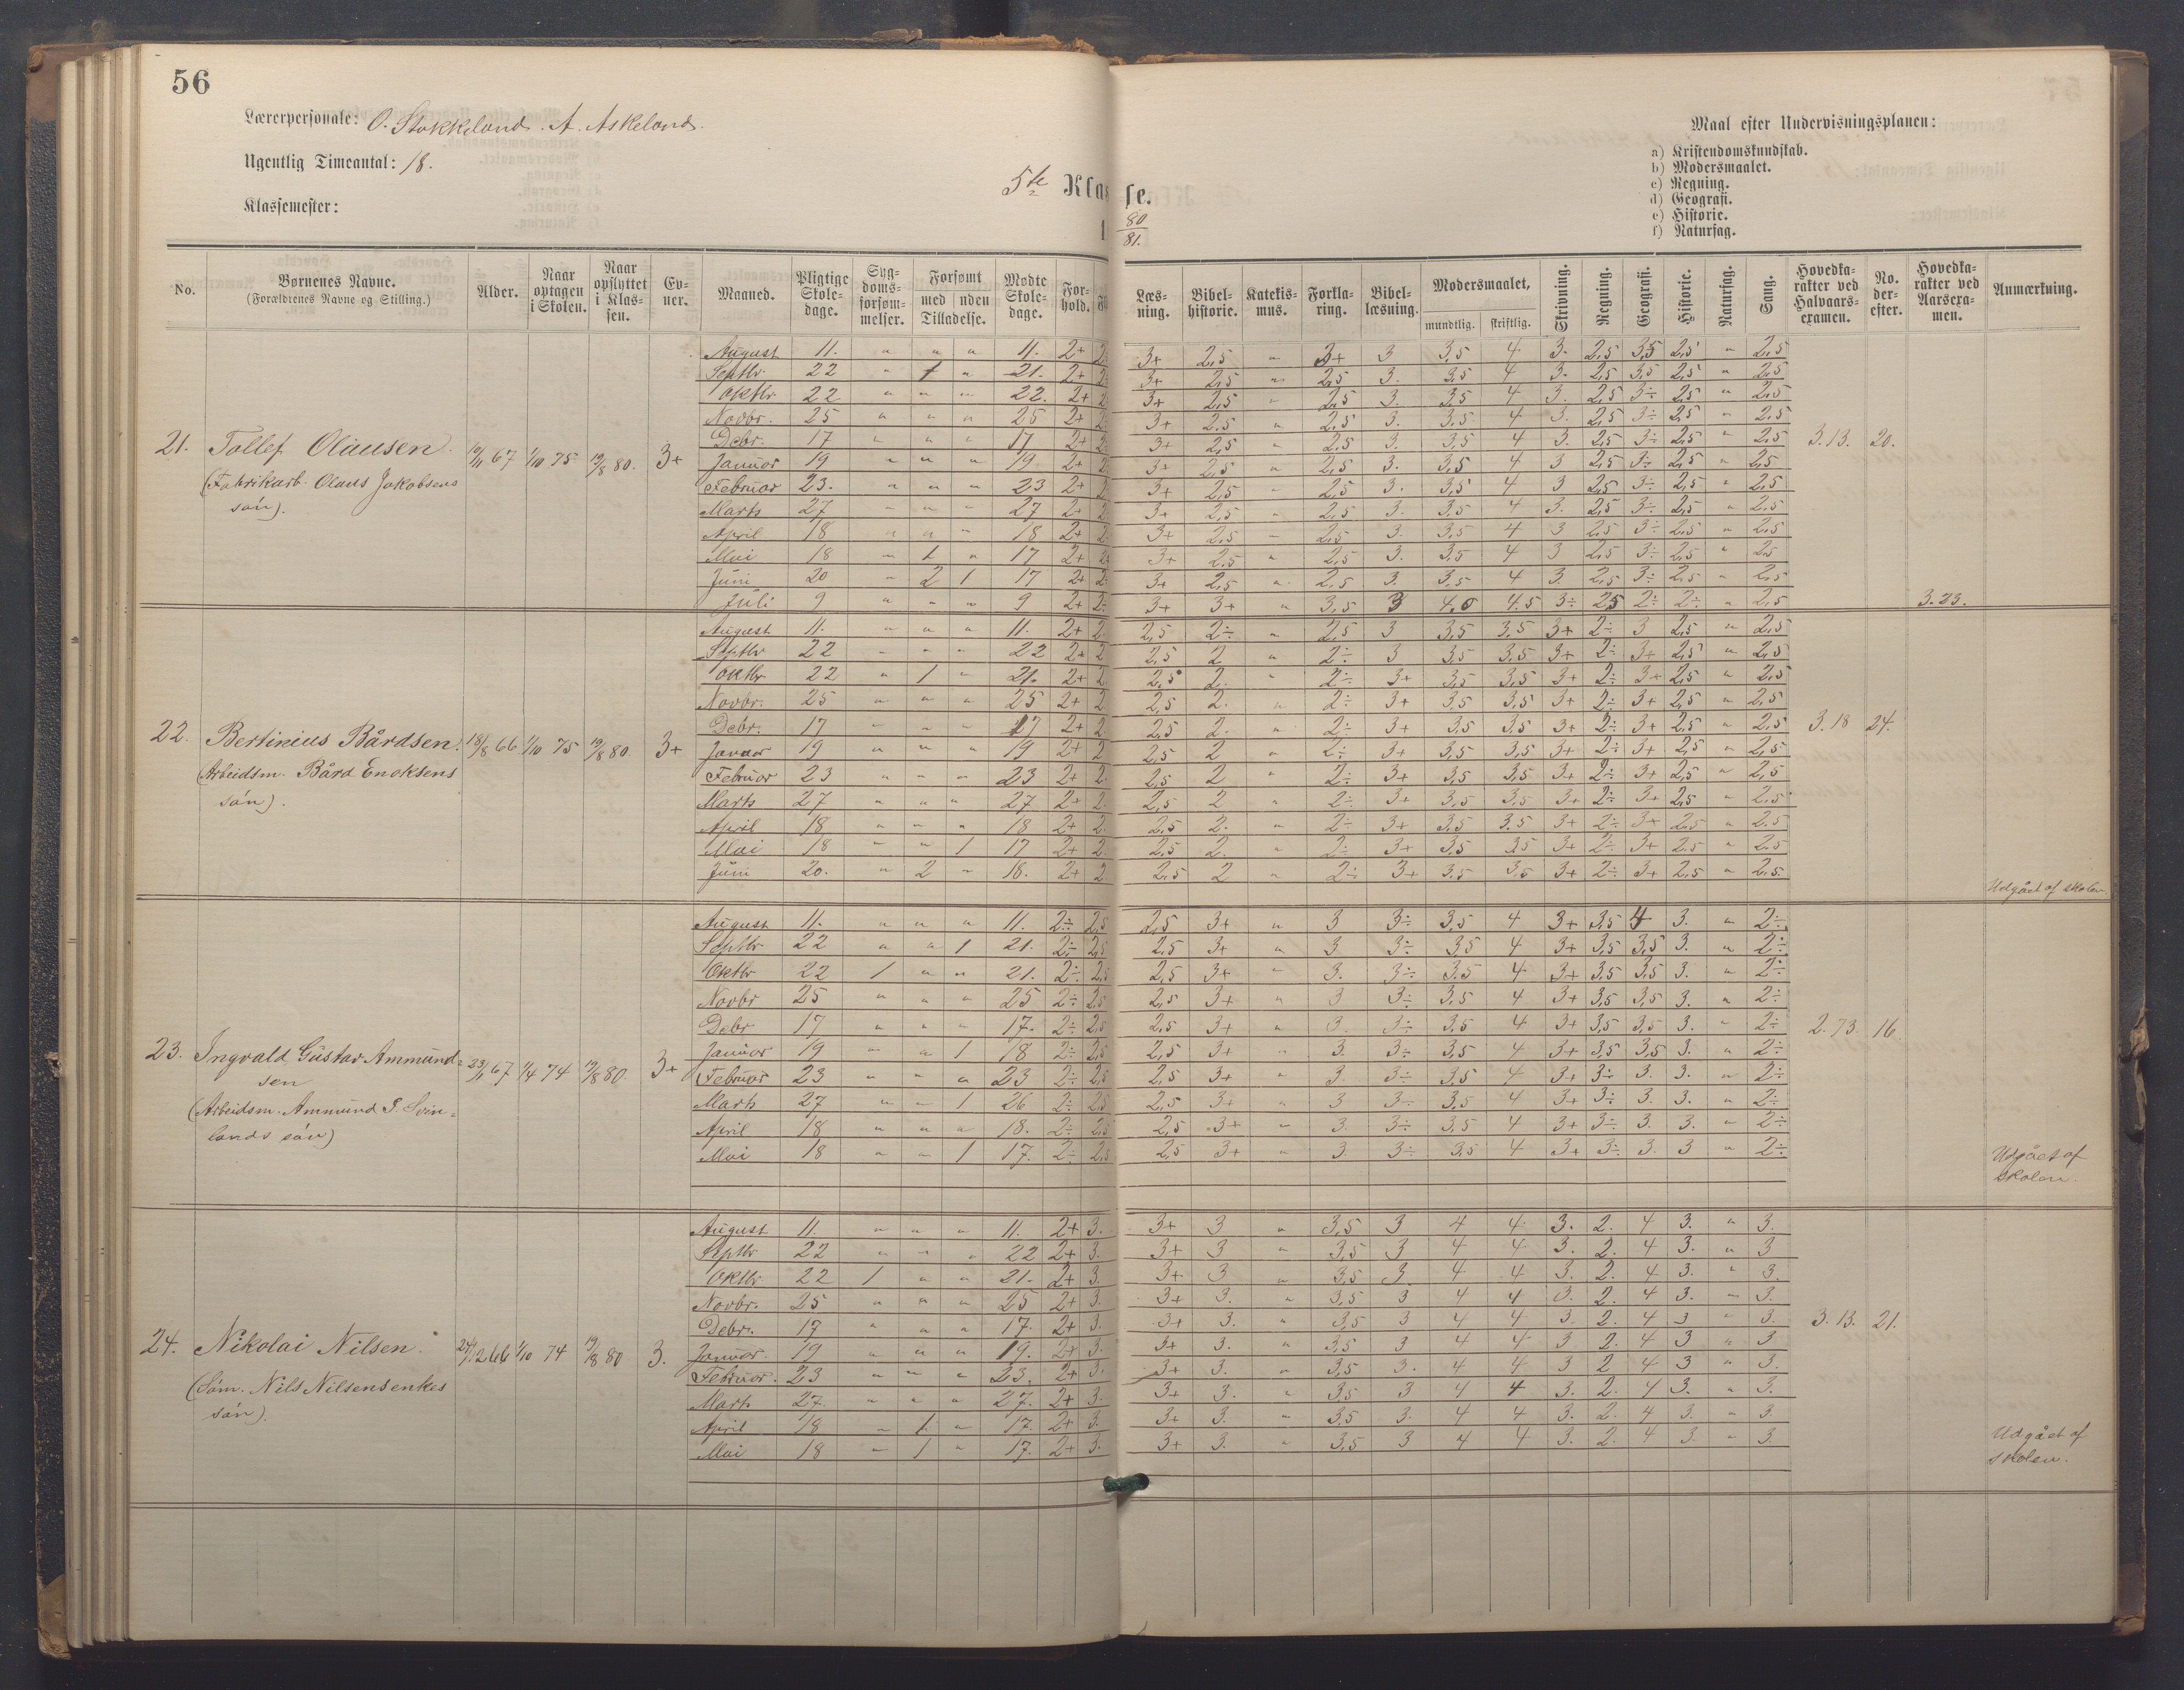 56
Lærerpersonale: O. Stokkeland. A. Askeland.
Ugentlig Timeantal: 18.
Klassemester:
5te Klasse.
80/81.
Maal efter Undervisningsplanen:
a) Kristendomskundskab.
b) Modersmaalet.
c) Regning.
d) Geografi.
e) Historie.
f) Naturfag.
No. | Børnenes Navne. (Forældrenes Navne og Stilling.) | Alder. | Naar optagen i Skolen. | Naar opflyttet i Klassen. | Evner. | Maaned. | Pligtige Skoledage. | Sygdomsforsømmelser. | Forsømt med Tilladelse. | uden | Mødte Skoledage. | Forhold. | Læsning. | Bibelhistorie. | Katekismus. | Forklaring. | Bibellæsning. | Modersmaalet, mundtlig. | skriftlig. | Skrivning. | Regning. | Geografi. | Historie. | Naturfag. | Sang. | Hovedkarakter ved Halvaarsexamen. | No. derefter. | Hovedkarakter ved Aarsexamen. | Anmærkning.
21. Tollef Olausen. 67 1/10 75 19/8 80. 3+ 3.13. 20. 3.23.
(Fabrikarb. Olaus Jakobsens
søn).
August 11. " " " 11. 2+ 3+ 2,5 " 3+ 3 3,5 4 3. 2,5 3,5 2,5 " 2,5
Septbr. 22 " 1 " 21. 2+ 3+ 2,5 " 2,5 3. 3,5 4 3. 2,5 3,5 2,5 " 2,5
Oktbr. 22 " " " 22. 2+ 3+ 2,5 " 2,5 3. 3,5 4 3. 2,5 3÷ 2,5 " 2,5
Novbr. 25 " " " 25 2+ 3+ 2,5 " 2,5 3. 3,5 4 3. 2,5 3÷ 2,5 " 2,5
Debr. 17 " " " 17 2+ 3+ 2,5 " 2,5 3. 3,5 4 3. 2,5 3÷ 2,5 " 2,5
Januar 19 " " " 19 2+ 3+ 2,5 " 2,5 3. 3,5 4 3 2,5 3÷ 2,5 " 2,5
Februar 23. " " " 23 2+ 3+ 2,5 " 2,5 3. 3,5 4 3 2,5 3÷ 2,5 " 2,5
Marts 27 " " " 27 2+ 3+ 2,5 " 2,5 3. 3,5 4 3. 2,5 3÷ 2,5 " 2,5
April 18 " " " 18 2+ 3+ 2,5 " 2,5 3. 3,5 4 3 2,5 3÷ 2,5 " 2,5
Mai 18 " 1 " 17 2+ 3+ 2,5 " 2,5 3. 3,5 4 3 2,5 3÷ 2,5 " 2,5
Juni 20 " 2 1 17 2+ 3+ 2,5 " 2,5 3. 3,5 4 3. 2,5 3÷ 2,5 " 2,5
Juli 9 " " " 9 2+ 2÷ 3+ 3+ " 3,5 3 4,0 4,5 3÷ 2,5 2÷ 2÷ " 2,5
22. Bertinius Bårdsen. 18/8 66 1/10 75 19/8 80. 3+ 3.18 24.
(Arbeidsm. Bård Enoksens
søn).
August 11. " " " 11. 2+ 2. 2,5 2÷ " 2,5 3 3,5 3,5 3+ 2÷ 3 2,5 " 2,5
Septbr 22 " " " 22 2+ 2 2,5 2 " 2÷ 3 3,5 3,5 3+ 2÷ 3+ 2,5 " 2,5
Oktbr 22 " 1 " 21. 2+ 2 2,5 2. " 2÷ 3+ 3,5 3,5 3+ 2÷ 3+ 2,5 " 2,5
Novbr. 25 " " " 25 2+ 2 2,5 2. " 2÷ 3+ 3,5 3,5 3+ 2÷ 3+ 2,5 " 2,5
Debr. 17 " " " 17 2+ 2. 2,5 2. " 2÷ 3+ 3,5 3,5 3+ 2÷ 3+ 2,5 " 2,5
Januar 19 " " " 19 2+ 2 2,5 2 " 2÷ 3+ 3,5 3,5 3+ 2÷ 3+ 2,5 " 2,5
Februar 23 " " " 23 2+ 2. 2,5 2 " 2÷ 3+ 3,5 3,5 3+ 2÷ 3+ 2,5 " 2,5
Marts 27 " " " 27 2+ 2. 2,5 2 " 2÷ 3+ 3,5 3,5 3+ 2÷ 3+ 2,5 " 2,5
April 18 " " " 18 2+ 2. 2,5 2. " 2÷ 3+ 3,5 3,5 3+ 2÷ 3+ 2,5 " 2,5
Mai 18 " " 1 17 2+ 2 2,5 2. " 2÷ 3+ 3,5 3,5 3+ 2÷ 3+ 2,5 " 2,5
Juni 20. " 2 " 18. 2+ 2. 2,5 2 " 2÷ 3+ 3,5 3,5 3+ 2÷ 3+ 2,5 " 2,5
Udgået af skolen
23. Ingvald Gustav Ammund=
sen 23/1 67 1/4 74 19/8 80. 3+ 2.73. 16.
(Arbeidsm. Ammund S. Svin=
lands søn)
August 11. " " " 11. 2÷ 2,5 2,5 3+ " 3 3÷ 3,5 4 3+ 3,5 4 3. " 2÷
Septbr 22 " " 1 21. 2÷ 2,5 2,5 3+ " 3 3÷ 3,5 4 3+ 3,5 3,5 3. " 2÷
Oktbr 22 1 " " 21. 2÷ 2,5 2,5 3+ " 3. 3÷ 3,5 4 3+ 3,5 3,5 3. " 2÷
Novbr 25 " " " 25 2÷ 2,5 2,5 3+ " 3 3÷ 3,5 4 3+ 3,5 3,5 3. " 2÷
Debr 17 " " " 17. 2÷ 2,5 2,5 3+ " 3. 3÷ 3,5 4 3+ 3,5 3,5 3. " 2÷
Januar 19 " " 1 18 2÷ 2,5 2,5 3+ " 3. 3÷ 3,5 4 3+ 3,5 3,5 3. " 2÷
Februar 23 " " " 23 2÷ 2,5 2,5 3+ " 3. 3÷ 3,5 4 3+ 3÷ 3. 3. " 2÷
Marts 27 " " 1 26 2÷ 2,5 2,5 3+ " 3 3÷ 3,5 4 3+ 3÷ 3. 3. " 2÷
April 18 " " " 18. 2÷ 2,5 2,5 3+ " 3. 3÷ 3,5 4 3+ 3÷ 3. 3. " 2÷
Mai 18 " " 1 17. 2÷ 2,5 2,5 3+ " 3. 3÷ 3,5 4 3+ 3÷ 3. 3 " 2÷
Udgået af
skolen.
24. Nikolai Nilsen. 66 1/10 74 19/8 80 3. 3.13. 21.
(Søm. Nils Nilsens enkes
søn).
August 11. " " " 11. 2+ 3. 3+ 3 " 3,5 3 4 4 3. 2. 4 3. " 3.
Septbr 22 " " " 22 2+ 3. 3+ 3 " 3,5 3 4 4 3. 2. 4 3. " 3
Oktbr 22 1 " " 21. 2+ 3. 3+ 3 " 3,5 3. 4 4 3. 2. 4 3. " 3.
Novbr. 25 " " " 25 2+ 3. 3+ 3. " 3,5 3 4 4 3. 2. 4 3. " 3.
Debr. 17 " " " 17. 2+ 3. 3+ 3. " 3,5 3 4 4 3. 2. 4 3 " 3.
Januar. 19 " " " 19. 2+ 3. 3+ 3. " 3,5 3 4 4 3 2. 4 3 " 3
Februar. 23 " " " 23. 2+ 3. 3+ 3. " 3,5 3. 4 4 3 2 4 3 " 3.
Marts 27. " " " 27. 2+ 3. 3+ 3. " 3,5 3 4 4 3. 2. 4 3. " 3.
April 18 " 1. " 17. 2+ 3. 3+ 3. " 3,5 3. 4 4 3. 2. 4 3. " 3.
Mai 18 " 1 " 17. 2+ 3. 3+ 3. " 3,5 3 4 4 3. 2. 4 3. " 3.
Udgået af
skolen.